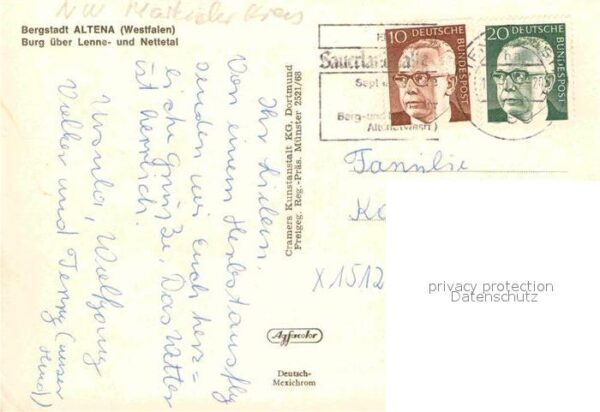 NW Märkischer Kreis
Bergstadt ALTENA (Westfalen)
Burg über Lenne- und Nettetal
Ihr Lieben.
Von einem Herbstausflug
senden wir Euch herz=
liche Grüße. Das Wetter
ist herrlich.
Ursula, Wolfgang
Volker und Jenny (unser
Hund)
Cramers Kunstanstalt KG, Dortmund
Freigeg. Reg.-Präs. Münster 2521/68
Agfacolor
Deutsch-
Mexichrom
Sauerland
Sept
Berg-und
Altena(Westf)
10
DEUTSCHE
BUNDESPOST
20
DEUTSCHE
BUNDESPOST
Familie
X1512
privacy protection
Datenschutz